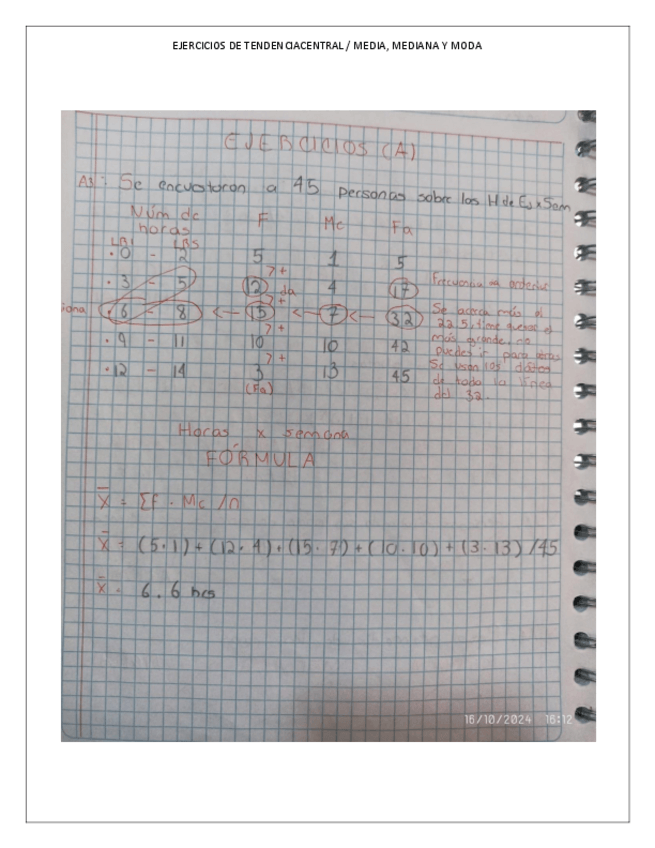 EJERCICIOS DE TENDENCIACENTRAL / MEDIA, MEDIANA Y MODA
EJERCICIOS (A)
A1: Se encuestaron a 45 personas sobre las H de Es x Sem
Núm de horas F Mc Fa
LRI LRS
• 0 - 2 5 1 5
7+
• 3 - 5 12 da 4 17 Frecuencia anterior
7+
iana • 6 - 8 <— 15 <— 7 <— 32 Se acerca más al
22.5, tiene que ser el
7+
• 9 - 11 10 10 42 más grande, no
puedes ir para atras
7+
Se usan los datos
• 12 - 14 3 13 45 de toda la línea
(Fa) del 32.
Horas x semana
FÓRMULA
X̄ = Σf · Mc / n
X̄ = (5·1) + (12·4) + (15·7) + (10·10) + (3·13) / 45
X̄ = 6.6 hrs
16/10/2024 16:12